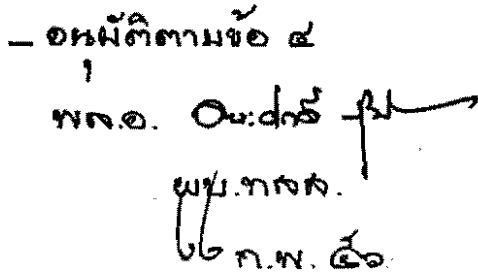 – อนุมัติตามข้อ ๔
พล.อ.
ผบ.ทสส.
ก.พ. ๕๖